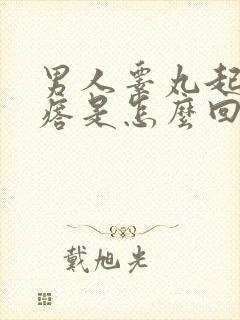 男人睾丸起
痞是怎麼回
戴旭光